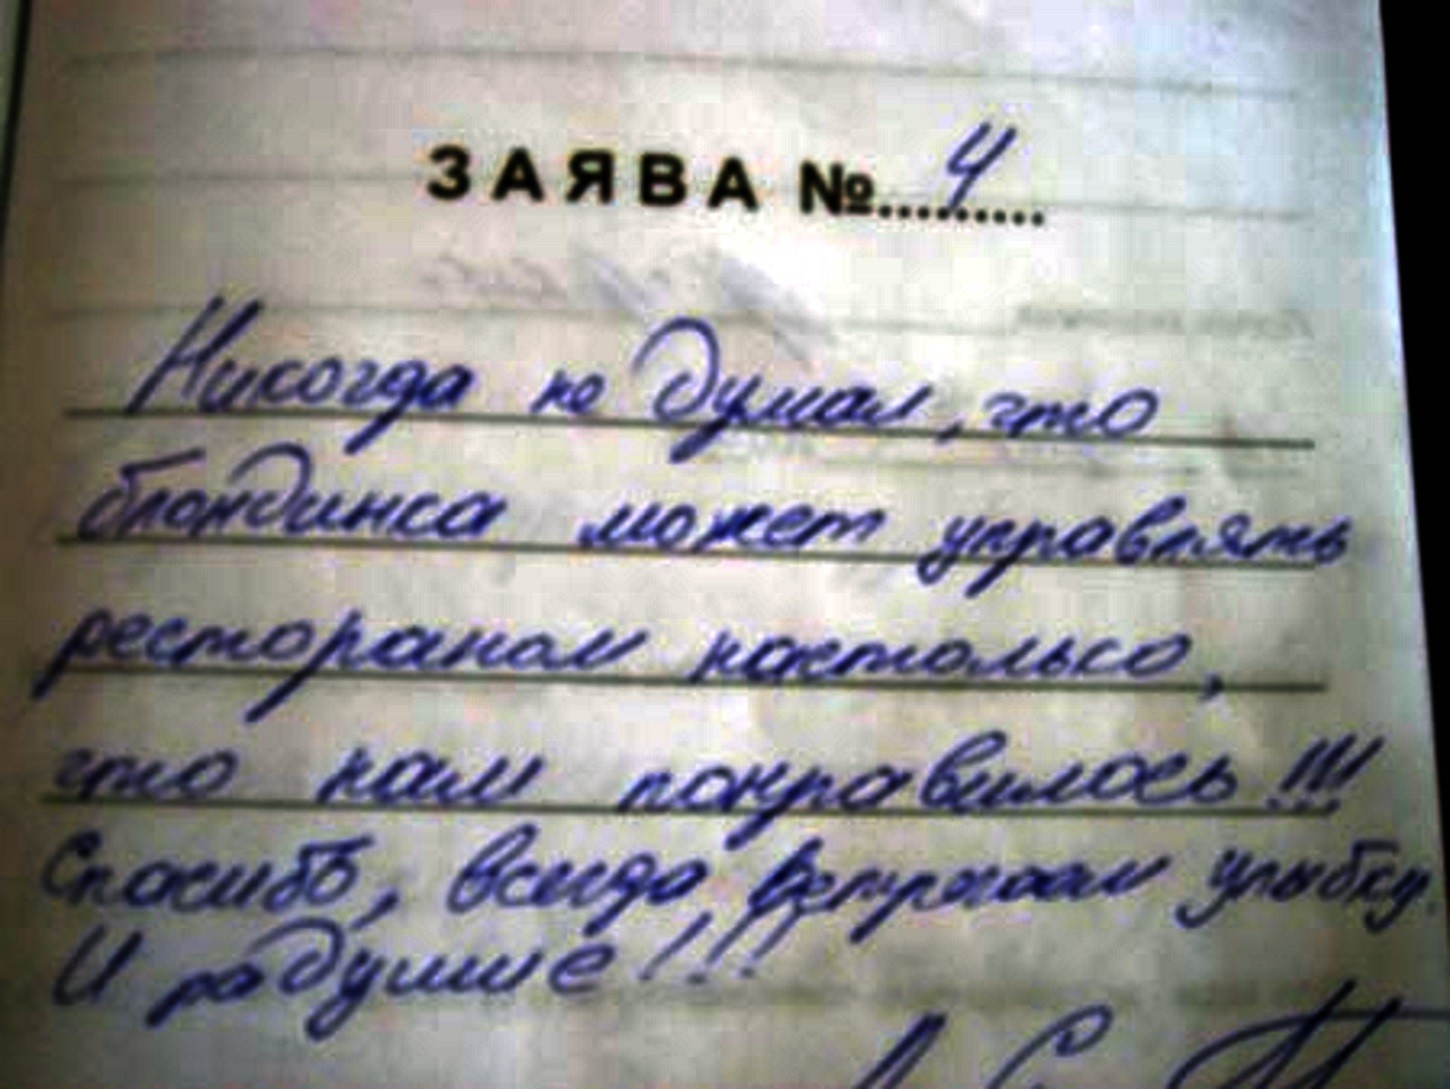 ЗАЯВА №.........4
Никогда не думал, что
блондинка может управлять
рестораном настолько,
что нам понравилось!!!
Спасибо, всегда встречаем улыбку.
И радушие!!!